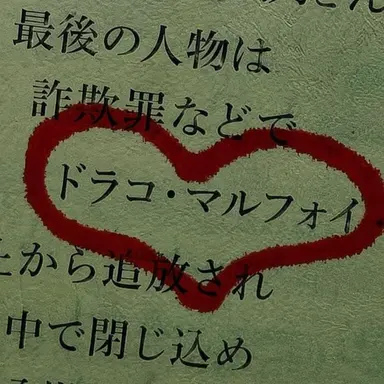 最後の人物は
詐欺罪などで
ドラコ・マルフォイ
から追放され
中で閉じ込め